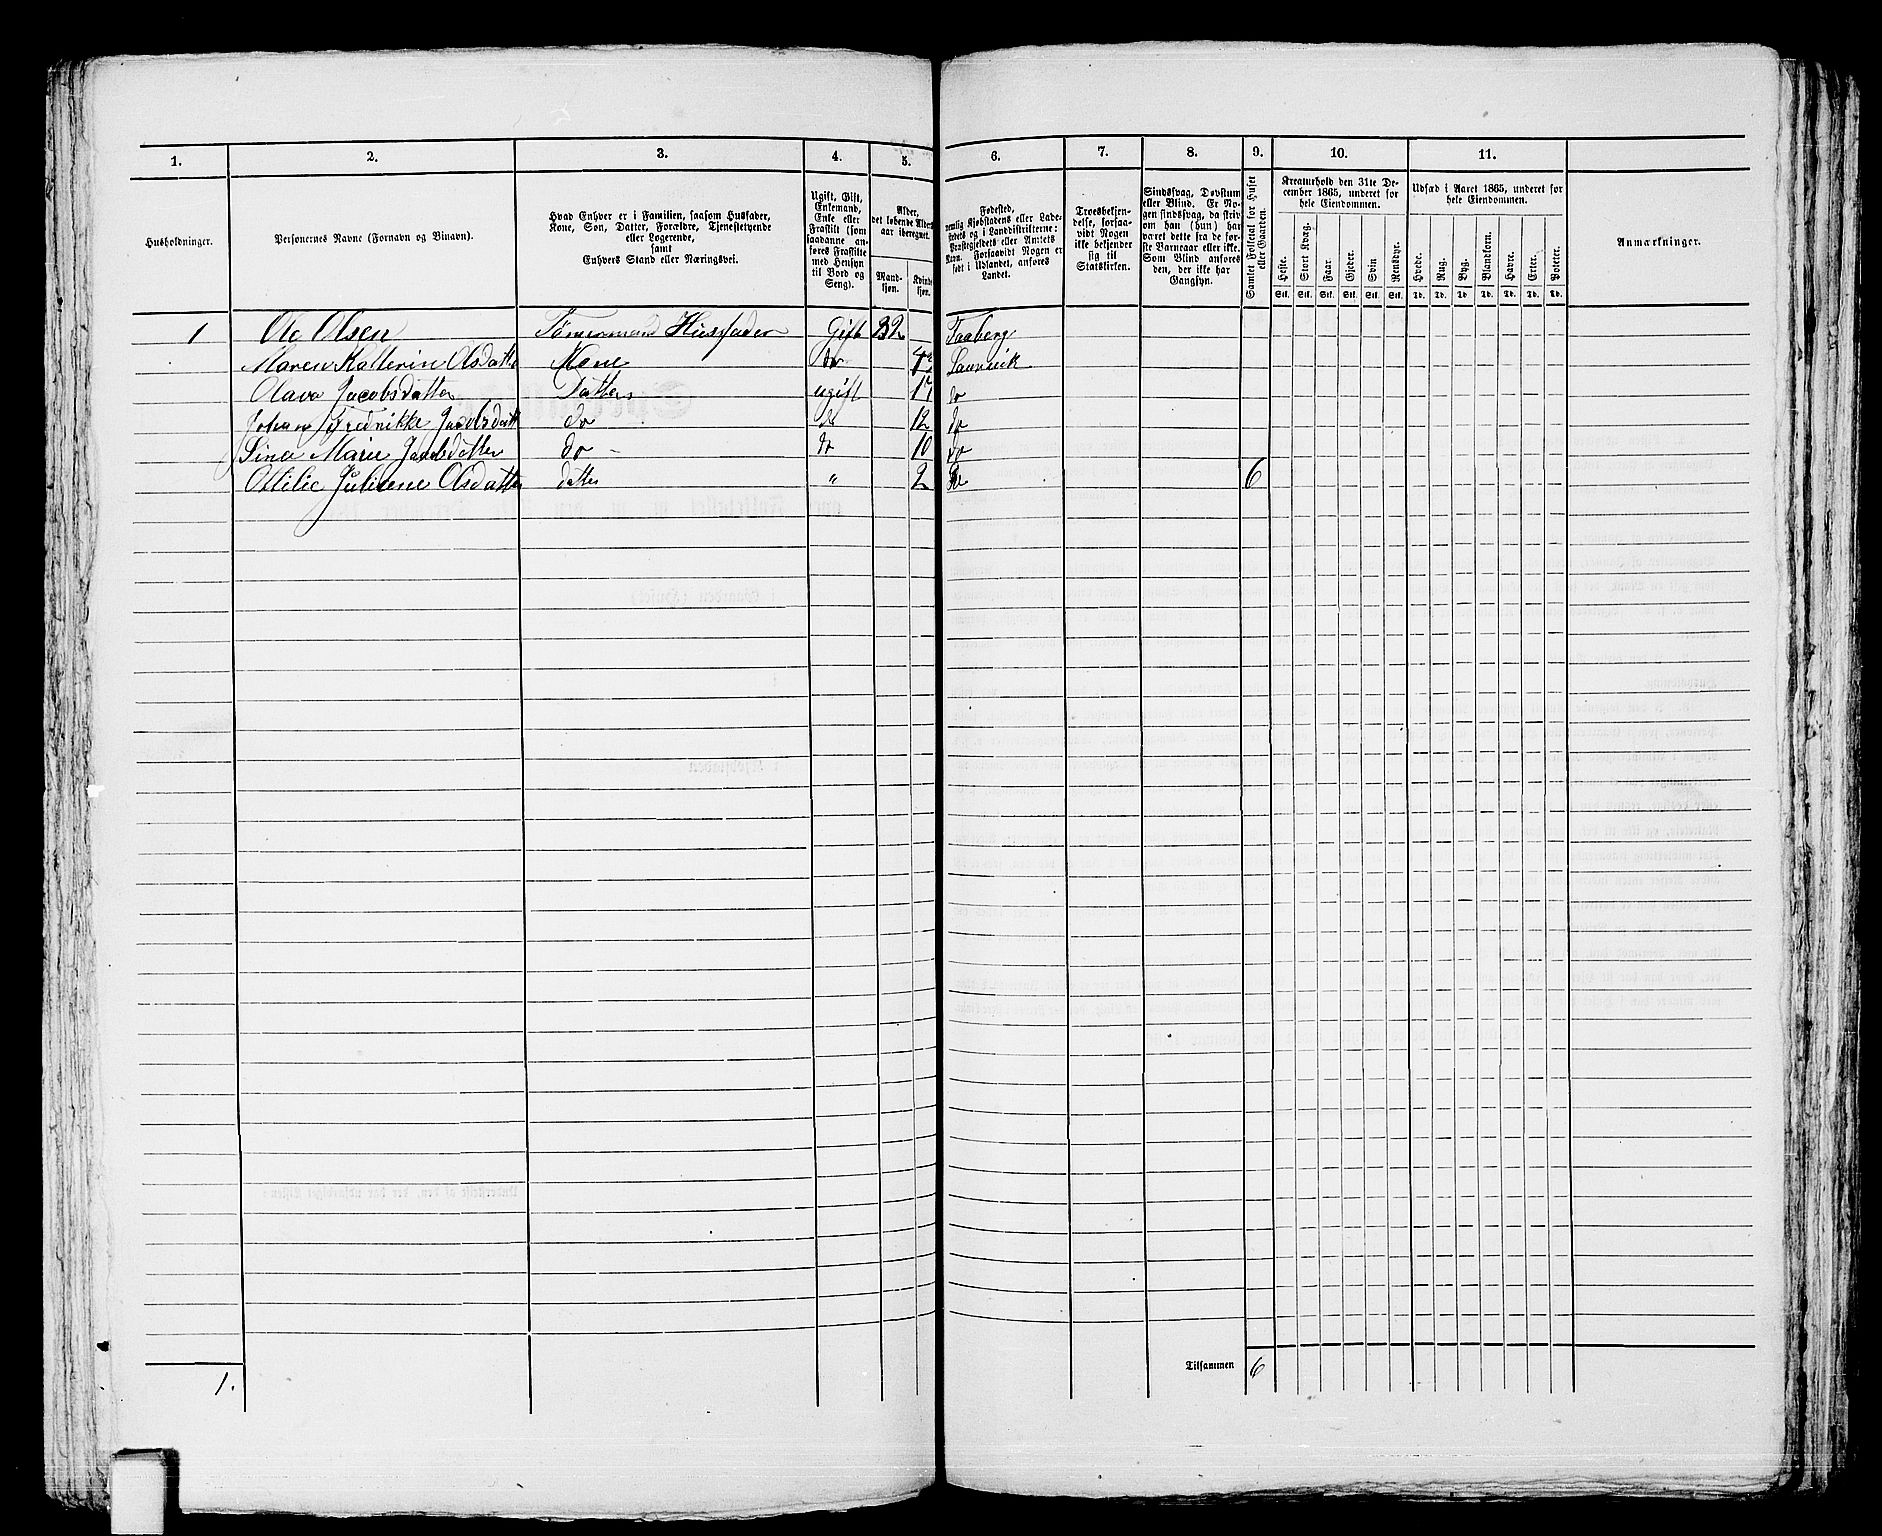 1. 2. 3. 4. 5. 6. 7. 8. 9. 10. 11.
Husholdninger.
Personernes Navne (Fornavn og Binavn).
Hvad Enhver er i Familien, saasom Husfader,
Kone, Søn, Datter, Forældre, Tjenestetyende
eller Logerende,
samt
Enhvers Stand eller Næringsvei.
Ugift, Gift,
Enkemand,
Enke eller
Fraskilt (som
saadanne an-
føres Fraskilte
med Hensyn
til Bord og
Seng).
Alder,
det løbende Alders-
aar iberegnet.
Mand-
kjøn.
Kvinde-
kjøn.
Fødested,
nemlig Kjøbstadens eller Lade-
stedets og i Landdistrikterne:
Præstegjeldets eller Amtets
Navn. Forsaavidt Nogen er
født i Udlandet, anføres
Landet.
Troesbekjen-
delse, forsaa-
vidt Nogen
ikke bekjender
sig til
Statskirken.
Sindssvag, Døvstum
eller Blind. Er No-
gen sindssvag, da skriv
om han (hun) har
været dette fra de før-
ste Barneaar eller ikke.
Som Blind anføres
den, der ikke har
Gangsyn.
Samlet Folketal for Huset
eller Gaarden.
Kreaturhold den 31te De-
cember 1865, underet for
hele Eiendommen.
Heste. Stort Kvæg. Faar. Gjeder. Svin Rensdyr.
Stk. Stk. Stk. Stk. Stk. Stk.
Udsæd i Aaret 1865, underet for
hele Eiendommen.
Hvede. Rug. Byg. Blandkorn. Havre. Erter. Poteter.
Td. Td. Td. Td. Td. Td. Td.
Anmærkninger.
1 Ole Olsen Tømermand Husfader Gift 32 Faaberg
Maren Katterin Olsdatter Kone do Laurvik
Olava Jacobsdatter Datter ugift 17 do
Fredrikke Jacobsdatt do do 12 do
Sina Marie Jacobsdatter do do 10 do
Ottilie Juliene Olsdatter datter " 2 do 6
Tilsammen 6
1.